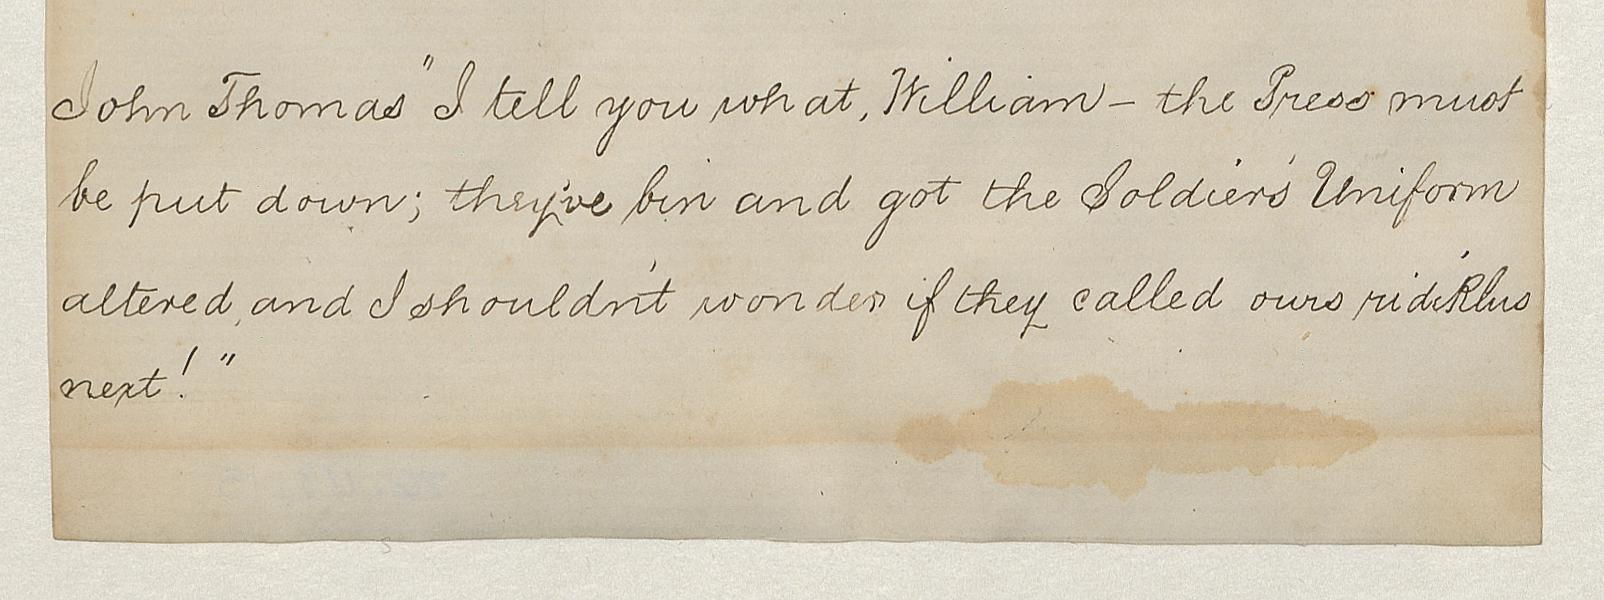 John Thomas "I tell you what, William – the Press must
be put down; they've bin and got the Soldier's Uniform
altered, and I shouldn't wonder if they called ours ridiklus
next!"